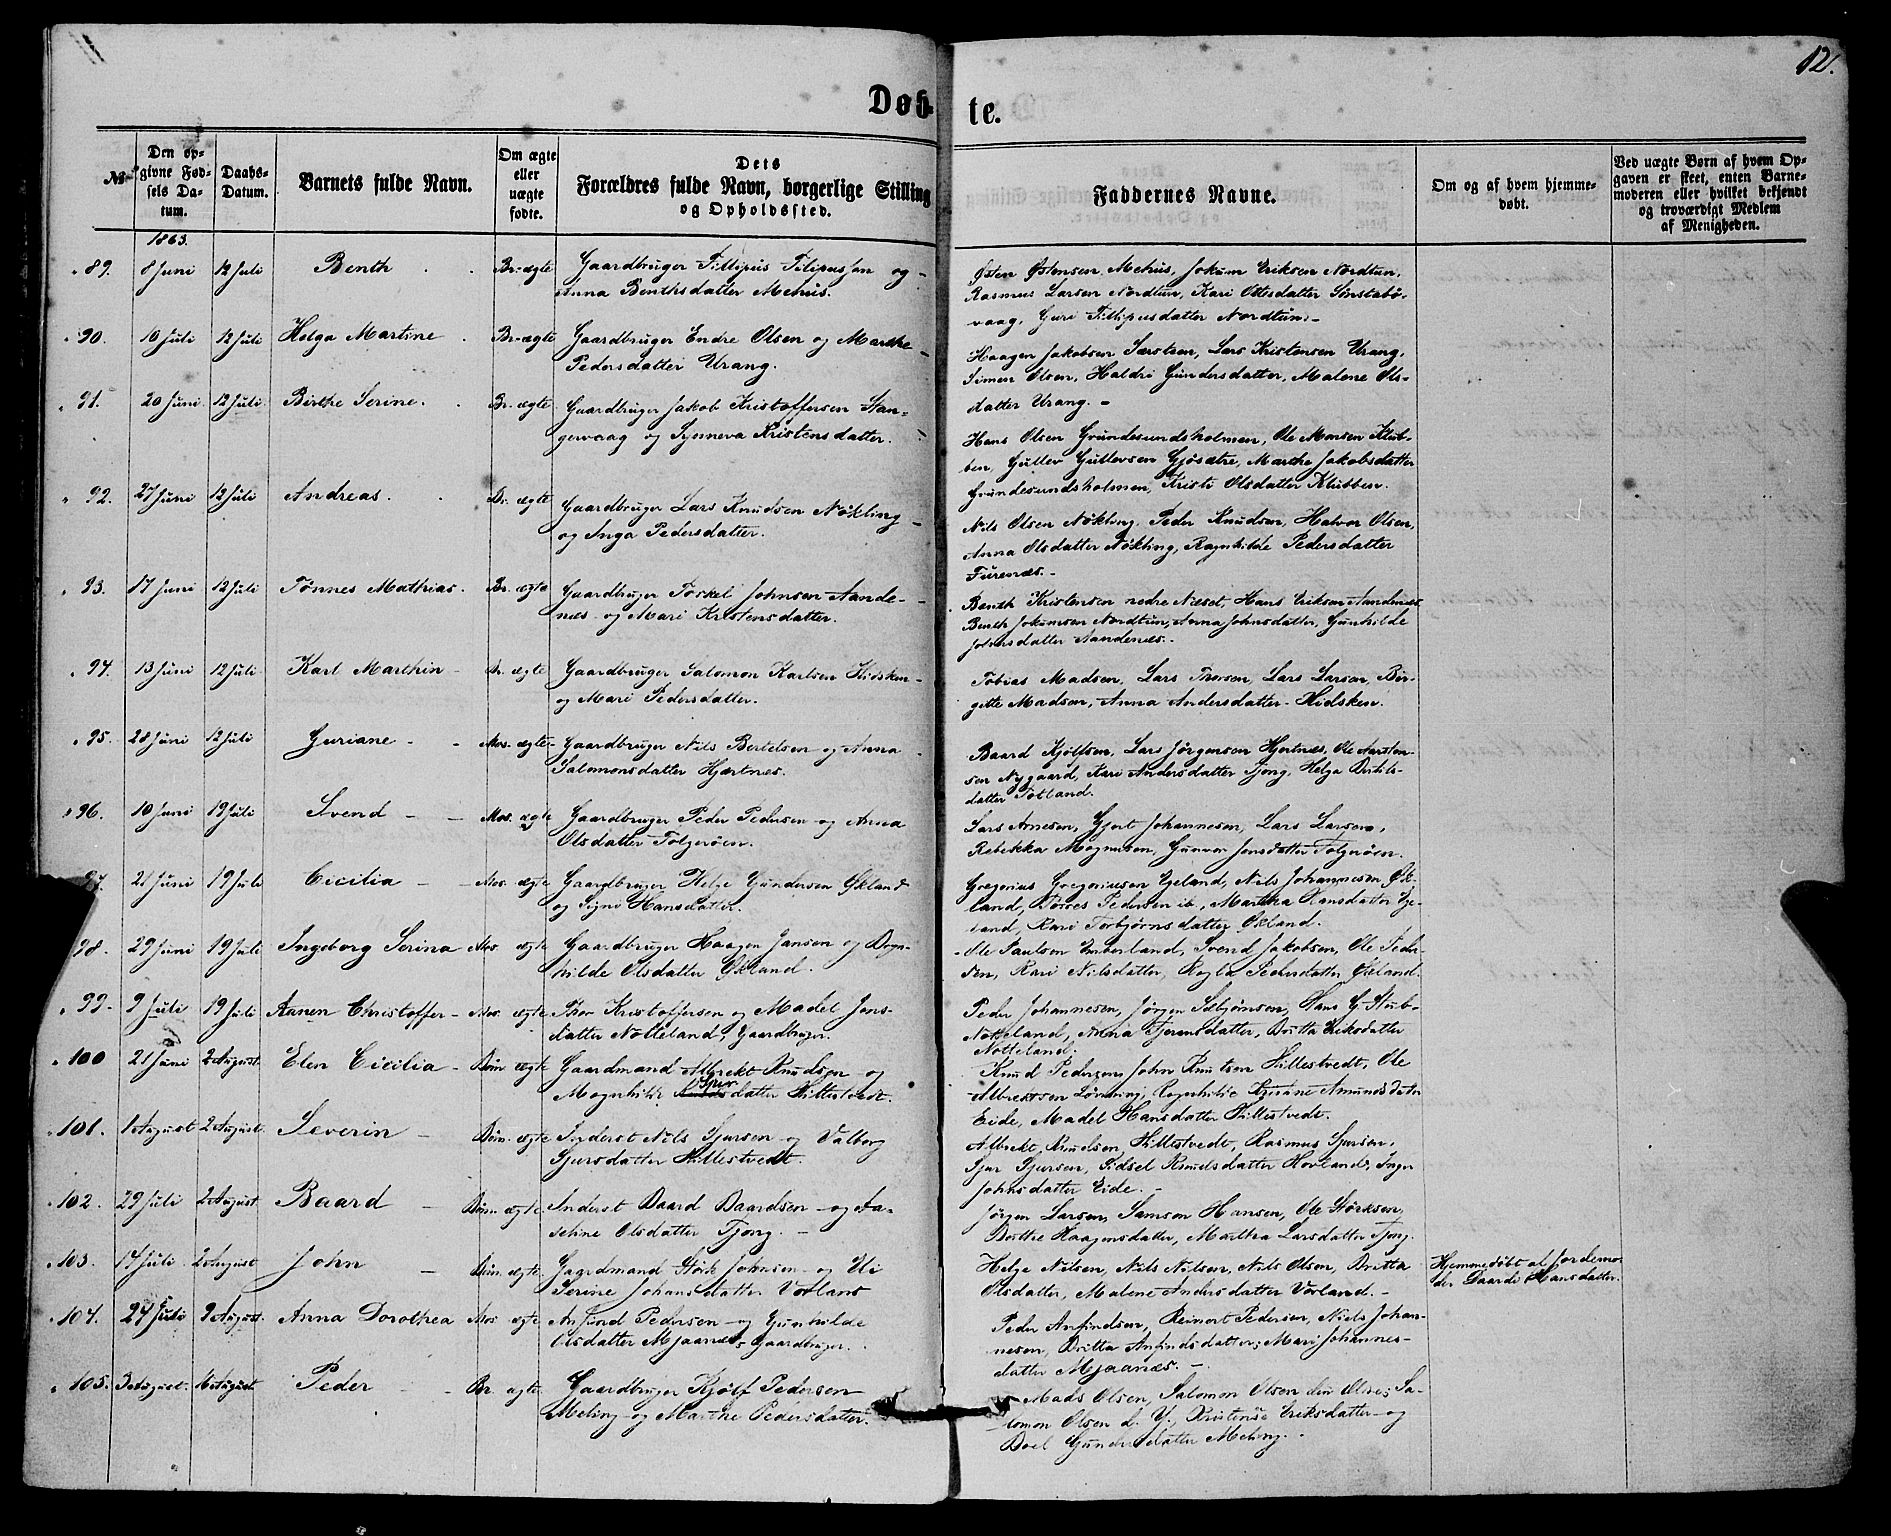 12.
Døb- te.
№
Den op-
givne Fød-
sels Da-
tum.
Daabs-
Datum.
Barnets fulde Navn.
Om ægte
eller
uægte
fødte.
Dets
Forældres fulde Navn, borgerlige Stilling
og Opholdssted.
Faddernes Navne.
Om og af hvem hjemme-
døbt.
Ved uægte Børn af hvem Op-
gaven er skeet, enten Barne-
moderen eller hvilket bekjendt
og troværdigt Medlem
af Menigheden.
1863.
89. 8 Juni 12 Juli Benth Br. ægte Gaardbruger Fillipus Filipussen og
Anna Benthsdatter Mehus.
Østen Østensen Mehus, Jokum Eriksen Nordtun,
Rasmus Larsen Nordtun, Kari Olsdatter Sønstabø-
vaag, Guri Fillipusdatter Nordtun.
90. 10 Juli 12 Juli Helga Martine Br. ægte Gaardbruger Endre Olsen og Marthe
Pedersdatter Urang.
Haagen Jakobsen Lars Kristensen Urang,
Simen Olsen, Haldri Gundersdatter, Malene Ols-
datter Urang.
91. 20 Juni 12 Juli Birthe Serine. Br. ægte Gaardbruger Jakob Kristoffersen Stan-
gervaag og Synneva Kristensdatter.
Hans Olsen Grundesundsholmen, Ole Monsen Klub-
ben, Gullev Gullevsen Gjøsætre, Marthe Jakobsdatter
Grundesundsholmen, Kristi Olsdatter Klubben.
92. 27 Juni 12 Juli Andreas. Br. ægte Gaardbruger Lars Knudsen Nøkling
og Inga Pedersdatter.
Nils Olsen Nøkling, Peder Knudsen, Halvor Olsen,
Anna Olsdatter Nøkling, Ragnhilde Pedersdatter
Furenæs.
93. 17 Juni 12 Juli Tønnes Mathias. Br. ægte Gaardbruger Torkel Johnsen Aande-
næs og Mari Kristensdatter.
Benth Kristensen nedre Næset, Hans Eriksen Aandenæs,
Benth Jokumsen Nordtun, Anna Johnsdatter, Gunhilde
Johnsdatter Aandenæs.
94. 13 Juni 12 Juli Karl Marthin Br. ægte Gaardbruger Salomon Karlsen Hidsken
og Mari Pedersdatter.
Tobias Madsen, Lars Thorsen, Lars Larsen, Bir-
gitte Madsen, Anna Andersdatter Hidsken.
95. 28 Juni 12 Juli Guriane Mos. ægte Gaardbruger Nils Bertelsen og Anna
Salomonsdatter Hjertnes.
Baard Kjølfsen, Lars Jørgensen Hjertnes, Ole Aarsten-
sen Nygaard, Kari Andersdatter Tjong, Helga Bertils-
datter Totland.
96. 10 Juni 19 Juli Svend Mos. ægte Gaardbruger Peder Pedersen og Anna
Olsdatter Folgerøen.
Lars Arnesen, Gjert Johannesen, Lars Larsen,
Rebekka Magnusen, Gunvor Jonsdatter Folgerøen.
97. 21 Juni 19 Juli Cicilia Mos. ægte Gaardbruger Helge Gundersen Økland
og Signi Hansdatter.
Gregorius Gregoriussen Egeland, Nils Johannesen Øk-
land, Tørres Pedersen ib., Martha Hansdatter Ege-
land, Kari Torbjørnsdatter Økland.
98. 29 Juni 19 Juli Ingeborg Serina Mos. ægte Gaardbruger Haagen Jansen og Bogn-
hilde Olsdatter Økland.
Ole Paulsen Emberland, Svend Jakobsen, Ole Peder-
sen, Kari Nilsdatter, Pedersdatter Økland.
99. 9 Juli 19 Juli Aanen Christoffer Mos. ægte Thor Kristoffersen og Madel Jons-
datter Notteland, Gaardbruger.
Peder Johannesen, Jørgen Sæbjørnsen, Hans G. Stub-
Notteland, Anna Tjeransdatter, Britta Eriksdatter
Notteland.
100 21 Juni 2 August. Elen Cicilia Bøm. ægte Gaardmand Albrekt Knudsen og
Magnhilde Sjur datter Hillestvedt.
Knud Pedersen, John Knutsen Hillestvedt, Ole
Albrektsen Løvning, Ragnhilde Amundsdatter
Eide, Madel Hansdatter Hillestvedt.
101. 1 August 2 August. Severin Bøm. ægte Inderst Nils Sjursen og Valborg
Sjursdatter Hillestvedt.
Albrekt Knudsen Hillestvedt, Rasmus Sjursen,
Sjur Sjursen, Sidsel Knudsdatter Hovland, Inger
Johnsdatter Eide.
102. 29 Juli 2 August Baard Bøm. ægte. Inderst Baard Baardsen og Jo-
sefine Olsdatter Tjong.
Jørgen Larsen, Samson Hansen, Ole Størksen,
Dorthe Haagensdatter, Martha Larsdatter Tjong.
103. 14 Juli 2 August John Bøm. ægte. Gaardmand Størk Johnsen og Eli
Serine Johansdatter Vorland
Helge Nilsen, Nils Nilsen, Nils Olsen, Britta
Olsdatter, Malene Andersdatter Vorland.
Hjemmedøbt af Jordemo-
der Baardi Hansdatter.
104. 24 Juli 9 August. Anna Dorothea Mos. ægte Anfind Pedersen og Gunhilde
Olsdatter Mjaanæs, Gaardbruger.
Peder Anfindsen, Reinert Pedersen, Niels Johan-
nesen, Britta Anfindsdatter, Mari Johannes-
datter Mjaanæs.
105. 3 August. 16 August. Peder Br. ægte. Gaardbruger Kjølf Pedersen
Meling og Marthe Pedersdatter.
Mads Olsen, Salomon Olsen den Eldre, Sa-
lomon Olsen d. Y., Kristense Eriksdatter og
Boel Gundersdatter Meling.